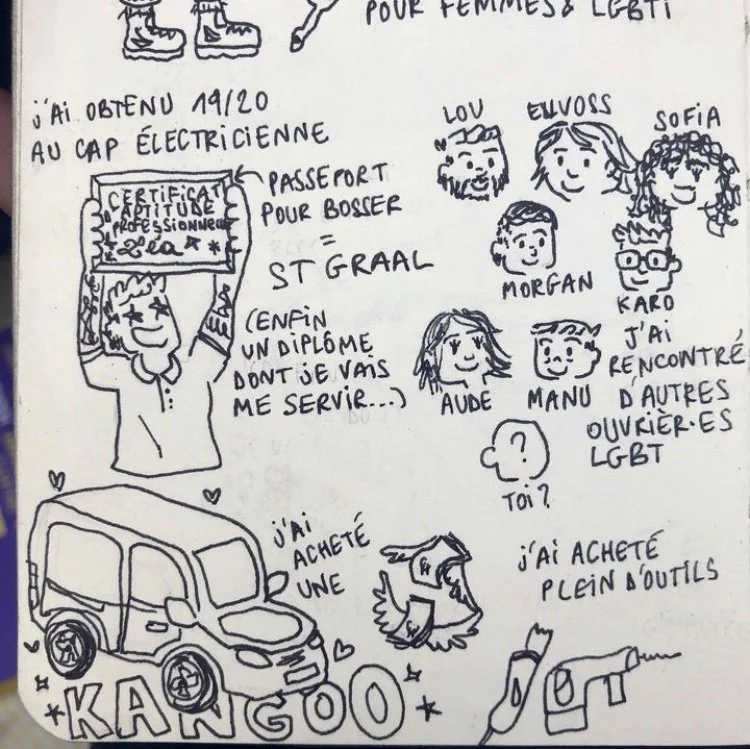 POUR FEMMES & LGBTI
j'AI OBTENU 19/20
AU CAP ÉLECTRICIENNE
CERTIFICAT
D'APTITUDE
PROFESSIONNELLE
Léa
PASSEPORT
POUR BOSSER
=
ST GRAAL
(ENFIN
UN DIPLÔME
DONT JE VAIS
ME SERVIR...)
LOU
ELLVOSS
SOFIA
MORGAN
KARO
AUDE
MANU
J'AI
RENCONTRÉ
D'AUTRES
OUVRIÈR·ES
LGBT
?
TOI?
j'AI
ACHETÉ
UNE
KANGOO
j'AI ACHETÉ
PLEIN D'OUTILS